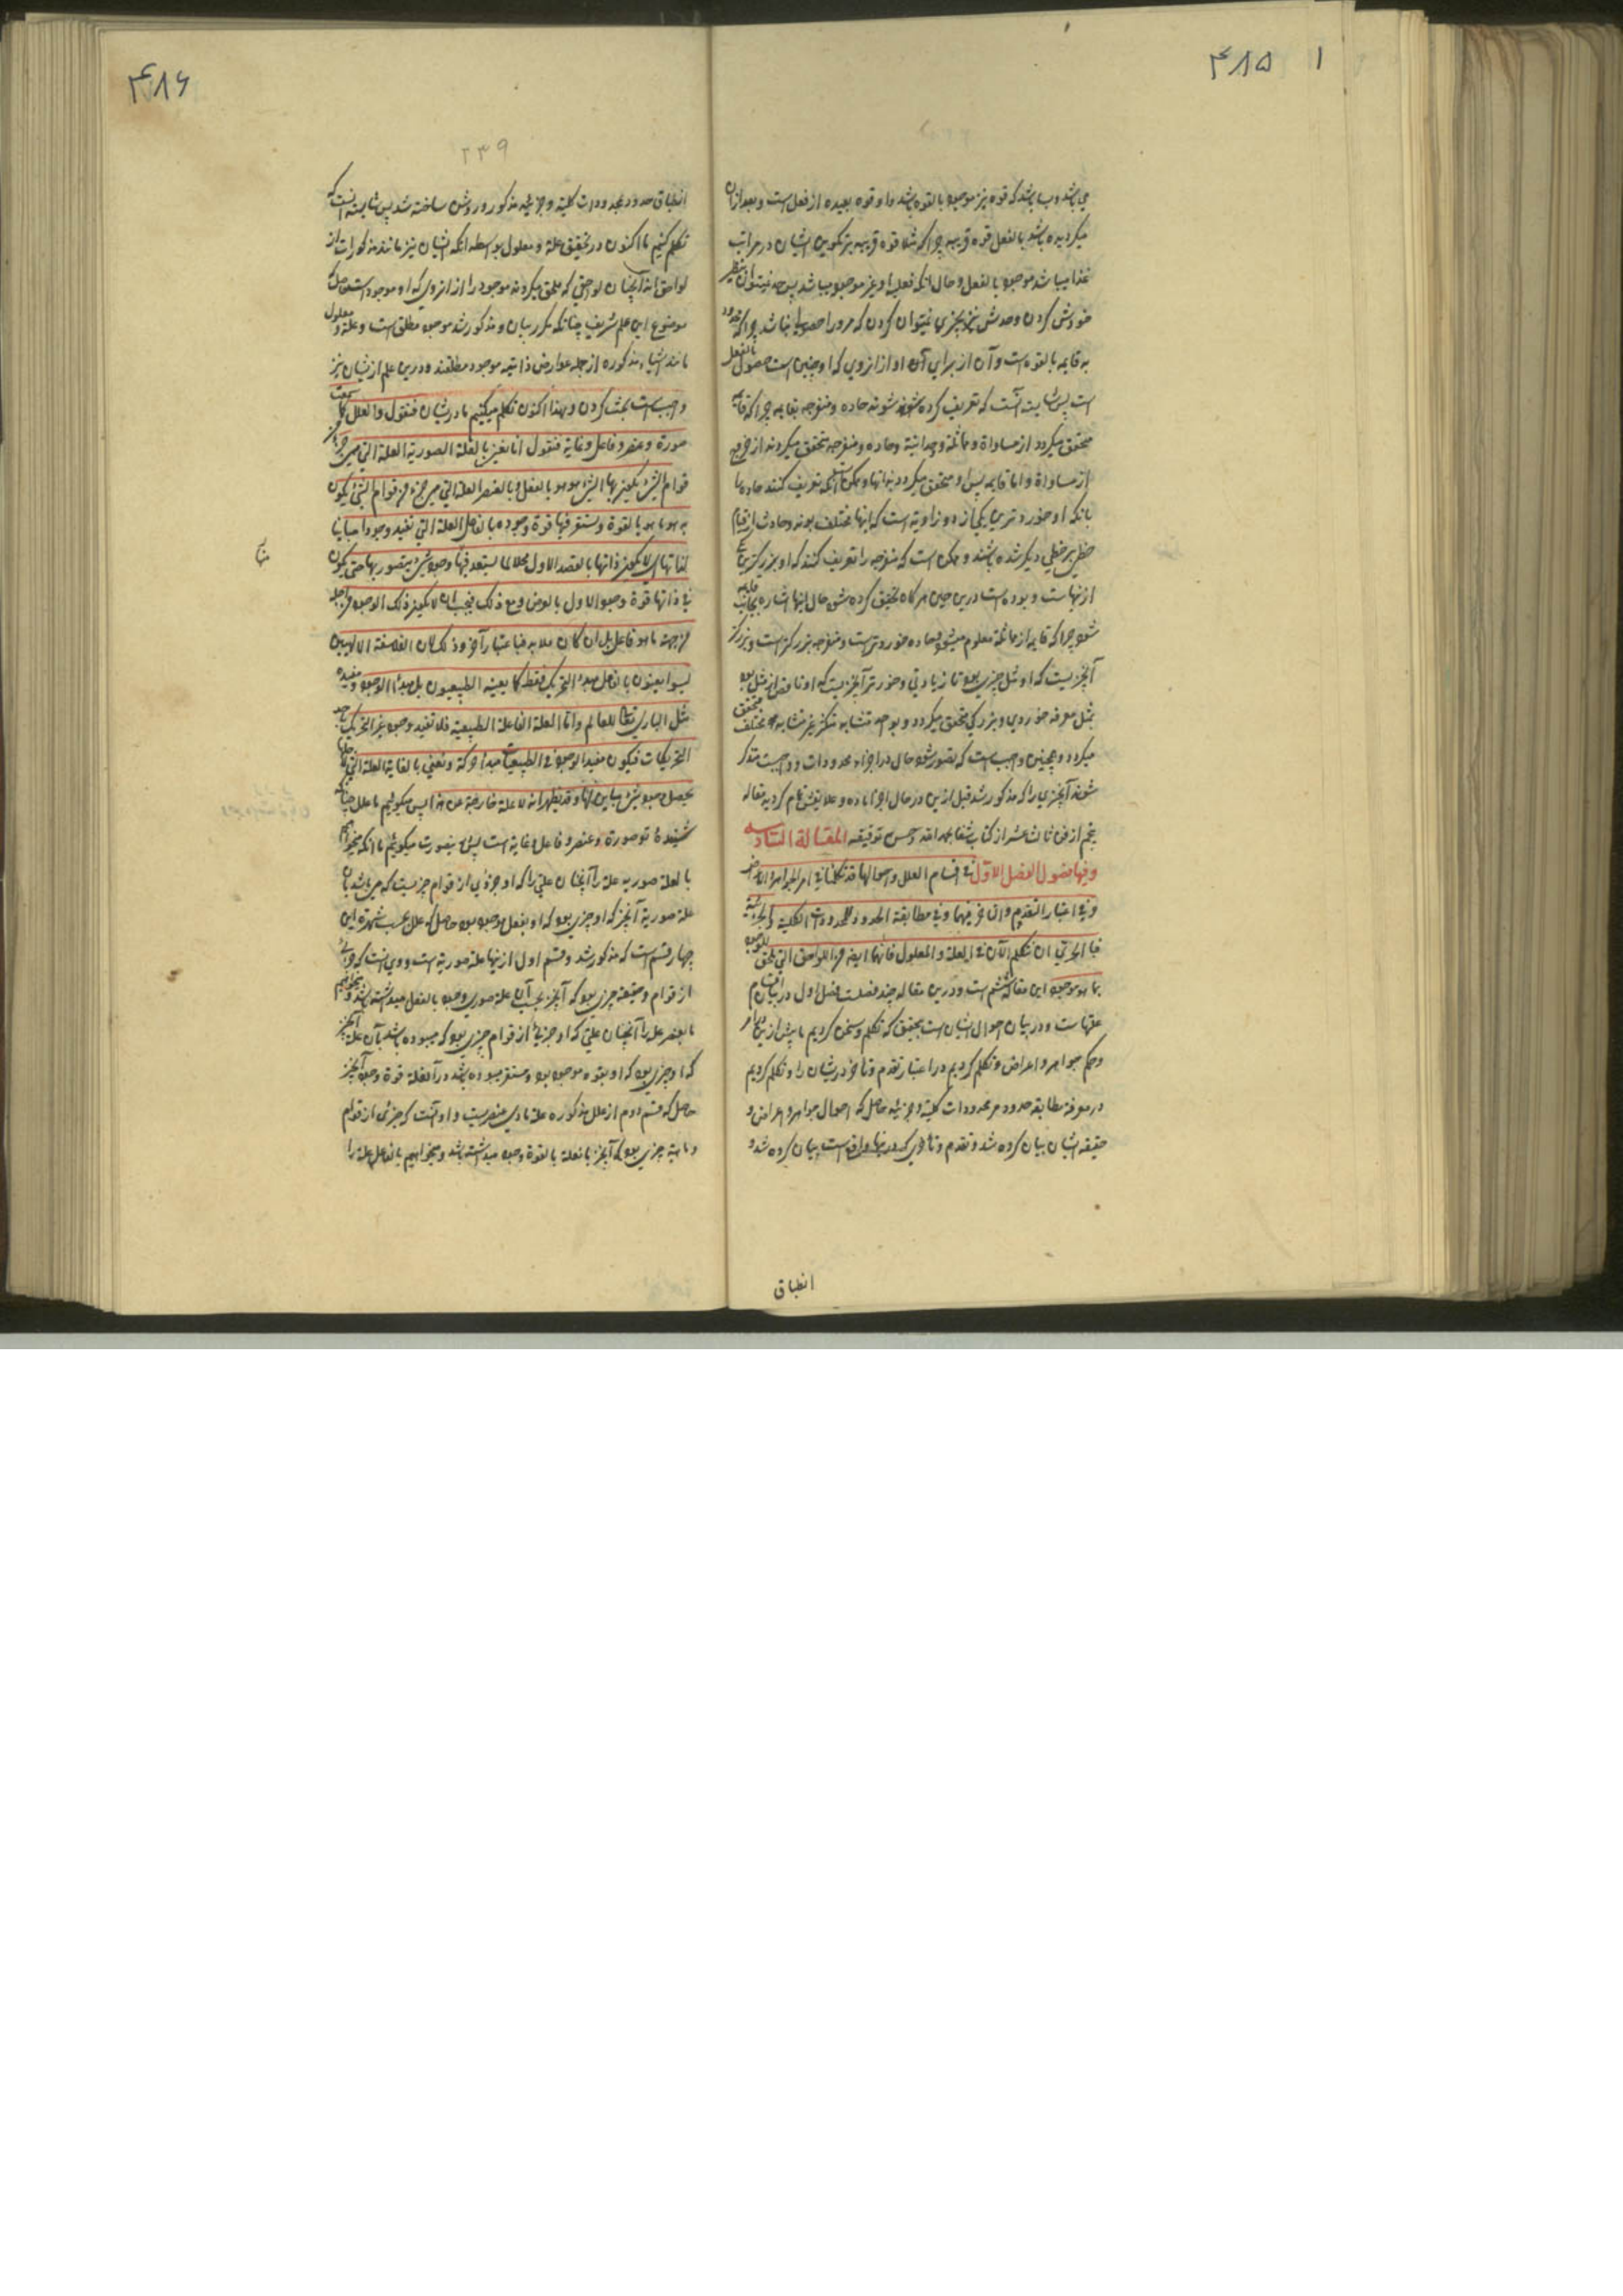 ۴۸۵ ۱
می باشد و باشد که قوه نیز موجود بالقوه باشد و او قوه بعیده از فعل است و بعد از آن
میگردیده باشد بالفعل قوه قریبه چرا که مثلا قوه قریبه بر تکوین انسان در مراتب
غذا میباشد موجود بالفعل و حال آنکه فعلیه او غیر موجود میباشد پس حد نمیتوان
خودش کردن و حدش نیز بچیزی نمیتوان کردن که مر ورا حصول نباشد چرا که
به قایمه بالقوه است و آن از برای آن او از انروی که او چنین است حصول بالفعل
است پس شایسته آنست که تعریف کرده شوند حاده و منفرجه بقایمه چرا که قایمه
متحقق میگردد از مساواة و مماثلة و وحدانیة و حاده و منفرجه متحقق میگردند از خروج
از مساواة و اما قایمه پس او متحقق میگردد بذاتها و ممکن است آنکه تعریف کنند حاده را
بانکه او خوردترین یکی از دو زاویه است که آنها مختلف بوند و حادث از قیام
خطی بر خطی دیگر شده باشند و ممکن است که منفرجه را تعریف کنند که او بزرگترین
از آنهاست و بوده است درین حین هر گاه تحقیق کرده شود حال آنها اشاره بجانب قایمه
شود چرا که قایمه از مماثلة معلوم میشود و حاده خوردترست و منفرجه بزرگترست و بزرگتر
آنچیزیست که او مثل چیزی بود تا زیادتی و خوردتر آنچیزیست که او ناقص از مثل بود
بمثل معرفة خوردی و بزرگی متحقق میگردد و بواحد متشابه متکثر غیر متشابه مختلف متحقق
میگردد و همچنین واجب است که تصور شود حال در اجزاء محدودات و واجبست متذکر
شوند آنچیزی را که مذکور شد قبل ازین در حال اجزا ماده و علایقش تمام گردید مقاله
پنجم از فن ثالث عشر از کتاب شفا بحمد الله و حسن توفیقه المقالة السادسه
وفیها فصول الفصل الاول فی اقسام العلل و احوالها قد تکلمنا فی امر الجواهر و الاعراض
و فی اعتبار التقدم و التاخر فیهما و فی مطابقة الحدود للمحدودات الکلیة و الجزئیة
فبا الحری ان نتکلم الآن فی العلة و المعلول فانهما ایضا من اللواحق التی تلحق الموجود
بما هو موجود این مقاله ششم است و درین مقاله چند فصلست فصل اول در بیان اقسام
علتهاست و در بیان احوال ایشان است بتحقیق که تکلم و سخن کردیم ما پیش ازین در امر
و حکم جواهر و اعراض و تکلم کردیم در اعتبار تقدم و تاخر در ایشان را و تکلم کردیم
در معرفة مطابقه حدود مر محدودات کلیة و جزئیه حاصل که احوال جواهر و اعراض و
حقیقة ایشان بیان کرده شد و تقدم و تاخری که در آنها واقع است بیان کرده شد و
انطباق
۴۸۶
۲۳۹
انطباق حدود بمحدودات کلیة و جزئیه مذکور و روشن ساخته شد پس شایسته آنست که
تکلم کنیم ما اکنون در تحقیق علة و معلول بواسطه آنکه ایشان نیز مانند مذکورات از
لواحق اند آنچنان لواحقی که ملحق میگردند موجود را از انروی که او موجود است حاصل که
موضوع این علم شریف چنانکه مکرر بیان و مذکور شد موجود مطلق است و علة و معلول
مانند اشیاء مذکوره از جمله عوارض ذاتیه موجود مطلقند و درین علم از ایشان نیز
واجب است بحث کردن و لهذا اکنون تکلم میکنیم ما در ایشان فنقول و العلل کما سمعت
صورة و عنصر و فاعل و غایة فنقول انا نعنی بالعلة الصوریة العلة التی هی جزء من
قوام الشئ یکون بها الشئ هو هو بالفعل و بالعنصر العلة التی هی جزء من قوام الشئ یکون
به هو ما هو بالقوة و تستقر فیها قوة وجوده بالفاعل العلة التی تفید وجودا مباینا
لذاتها ای لا یکون ذاتها بالقصد الاول محلا لما یستفید فیها وجود شئ یتصور بها حتی یکون
فی ذاتها قوة وجود الا بالعرض و مع ذلک فیجب ان لا یکون ذلک الوجود من اجله
من جهة ما هو فاعل بل ان کان و لا بد فباعتبار آخر و ذلک لان الفلاسفة الالهیین
لیسوا یعنون بالفاعل مبدا التحریک فقط کما یعنیه الطبیعیون بل مبدا الوجود و مفیده
مثل الباری تعالی للعالم و اما العلة الفاعلة الطبیعیة فلا تفید وجودا غیر التحریک باحد
التحریکات فیکون مفید الوجود فی الطبیعیات مبدأ حرکة و نعنی بالغایة العلة التی لاجلها
یحصل وجود شئ مباین لها و قد یظهر انه لا علة خارجة عن هذا پس میگوئیم ما علل چنانکه
شنیدهٔ تو صورة و عنصر و فاعل و غایة است پس درینصورت میگوئیم ما آنکه میخواهیم
بالعلة صوریه علة را آنچنان علتی را که او جزوی از قوام چیزیست که می باشد بآن
علة صوریة آنچیز که او چیزی بود که او بفعل موجود بود حاصل که علل بحسب شهرة این
چهار قسم است که مذکور شد و قسم اول از ینها علة صوریة است و وی آنست که جزئی
از قوام و حقیقة چیزی بود که آنچیز بسبب آن علة صوری وجود بالفعل میداشته باشد و میخواهیم
ما بعنصر علة را آنچنان علتی که او جزئیاً از قوام چیزی بود که میبوده باشد بآن علة آنچیز
که او چیزی بود که او بقوه موجود بود و مستقر میبوده باشد در آنعلة قوة وجود آنچیز
حاصل که قسم دوم از علل مذکوره علة مادی عنصریست و او آنست که جزئی از قوام
و ماهیة چیزی بود که آنچیز بآنعلة بالقوة وجود میداشته باشد و میخواهیم بالفاعل علة را